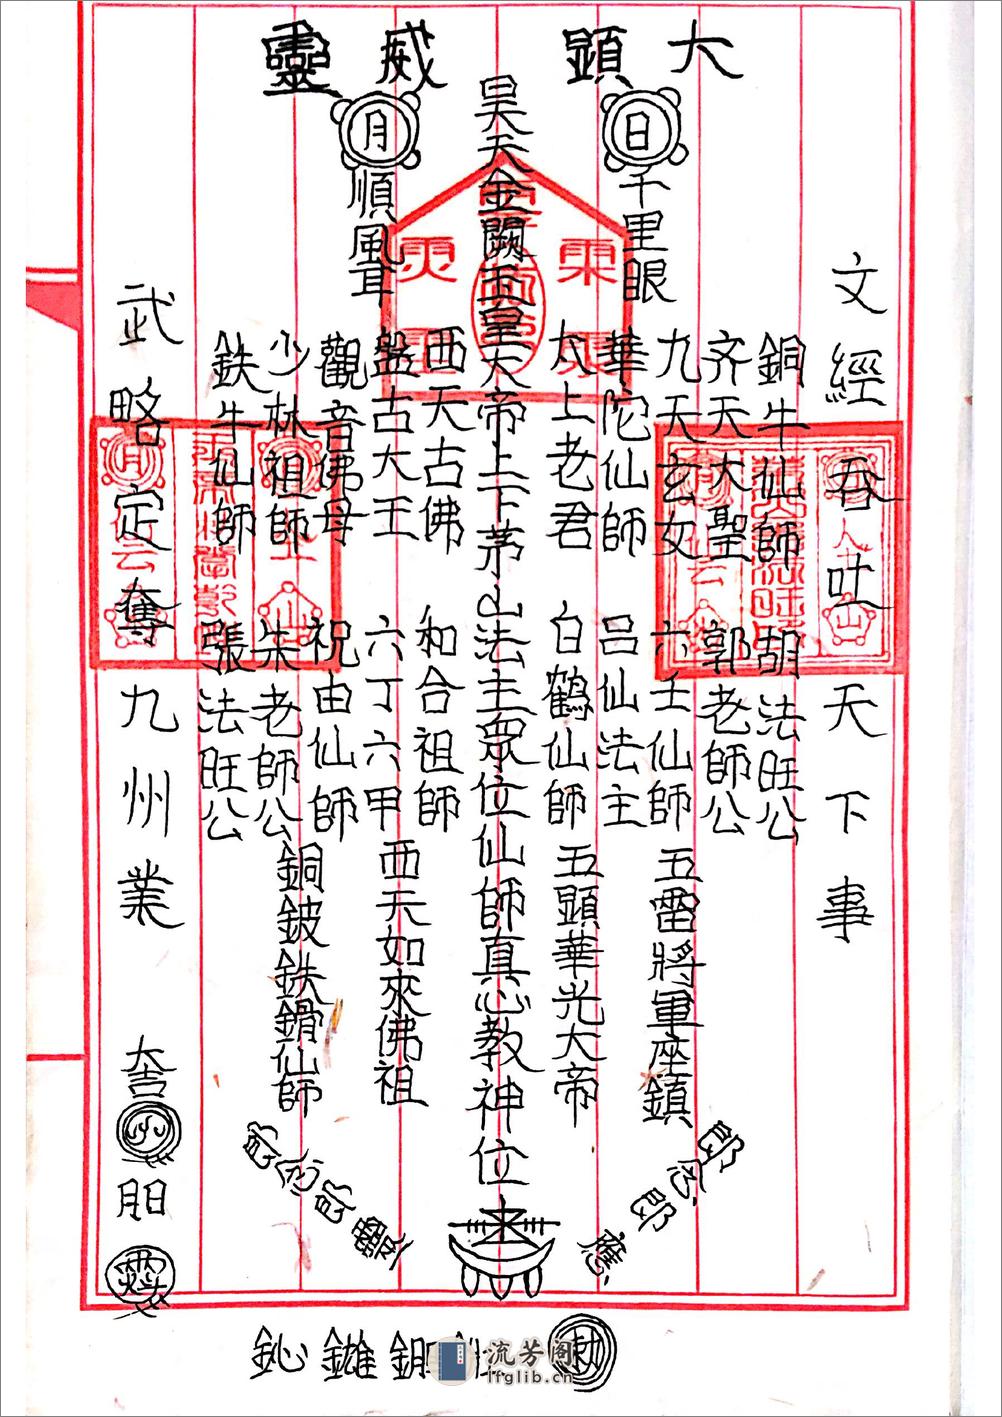 大顕威靈
日
月
文經吞吐天下事
銅牛仙師 胡法旺公
齐天大聖 郭老師公
九天玄女 六壬仙師 五雷將軍座鎮
千里眼
華陀仙師 呂仙法主
太上老君 白鶴仙師 五顕華光大帝
昊天金闕玉皇大帝上下茅山法主眾位仙師真心教神位
西天古佛 和合祖師
盤古大王 六丁六甲 西天如來佛祖
順風耳
觀音佛母 祝由仙師
少林祖師 朱老師公 銅鈹鉄鑄仙師
鉄牛仙師 張法旺公
武略定奪九州業
應
靈
流芳阁
lfglib.cn